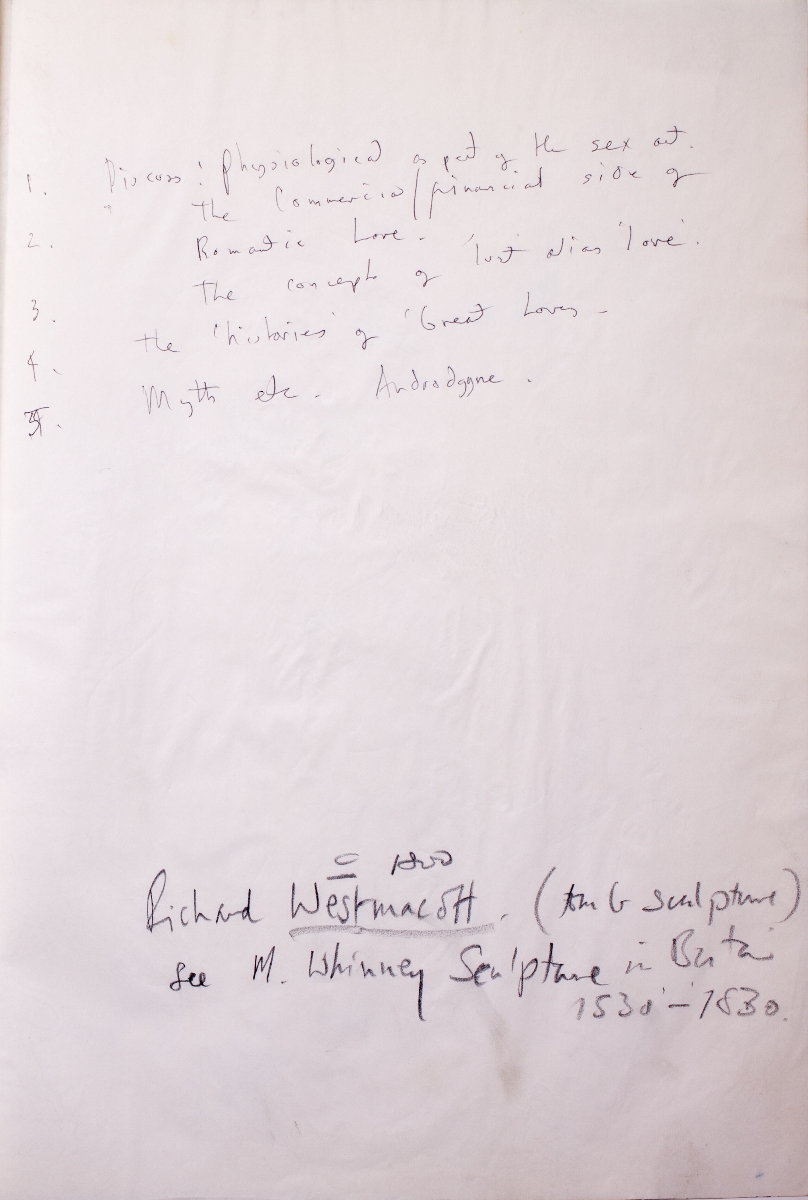 1. Discuss: Physiological as part of the sex act.
2. the Commercial/financial side of
Romantic Love.
3. The concepts of 'lust' alias 'love'.
4. the 'histories' of 'Great Loves -
5. Myth etc. Androdgyne.
c 1800
Richard Westmacott. (tomb sculpture)
see M. Whinney Sculpture in Britain
1530 - 1830.